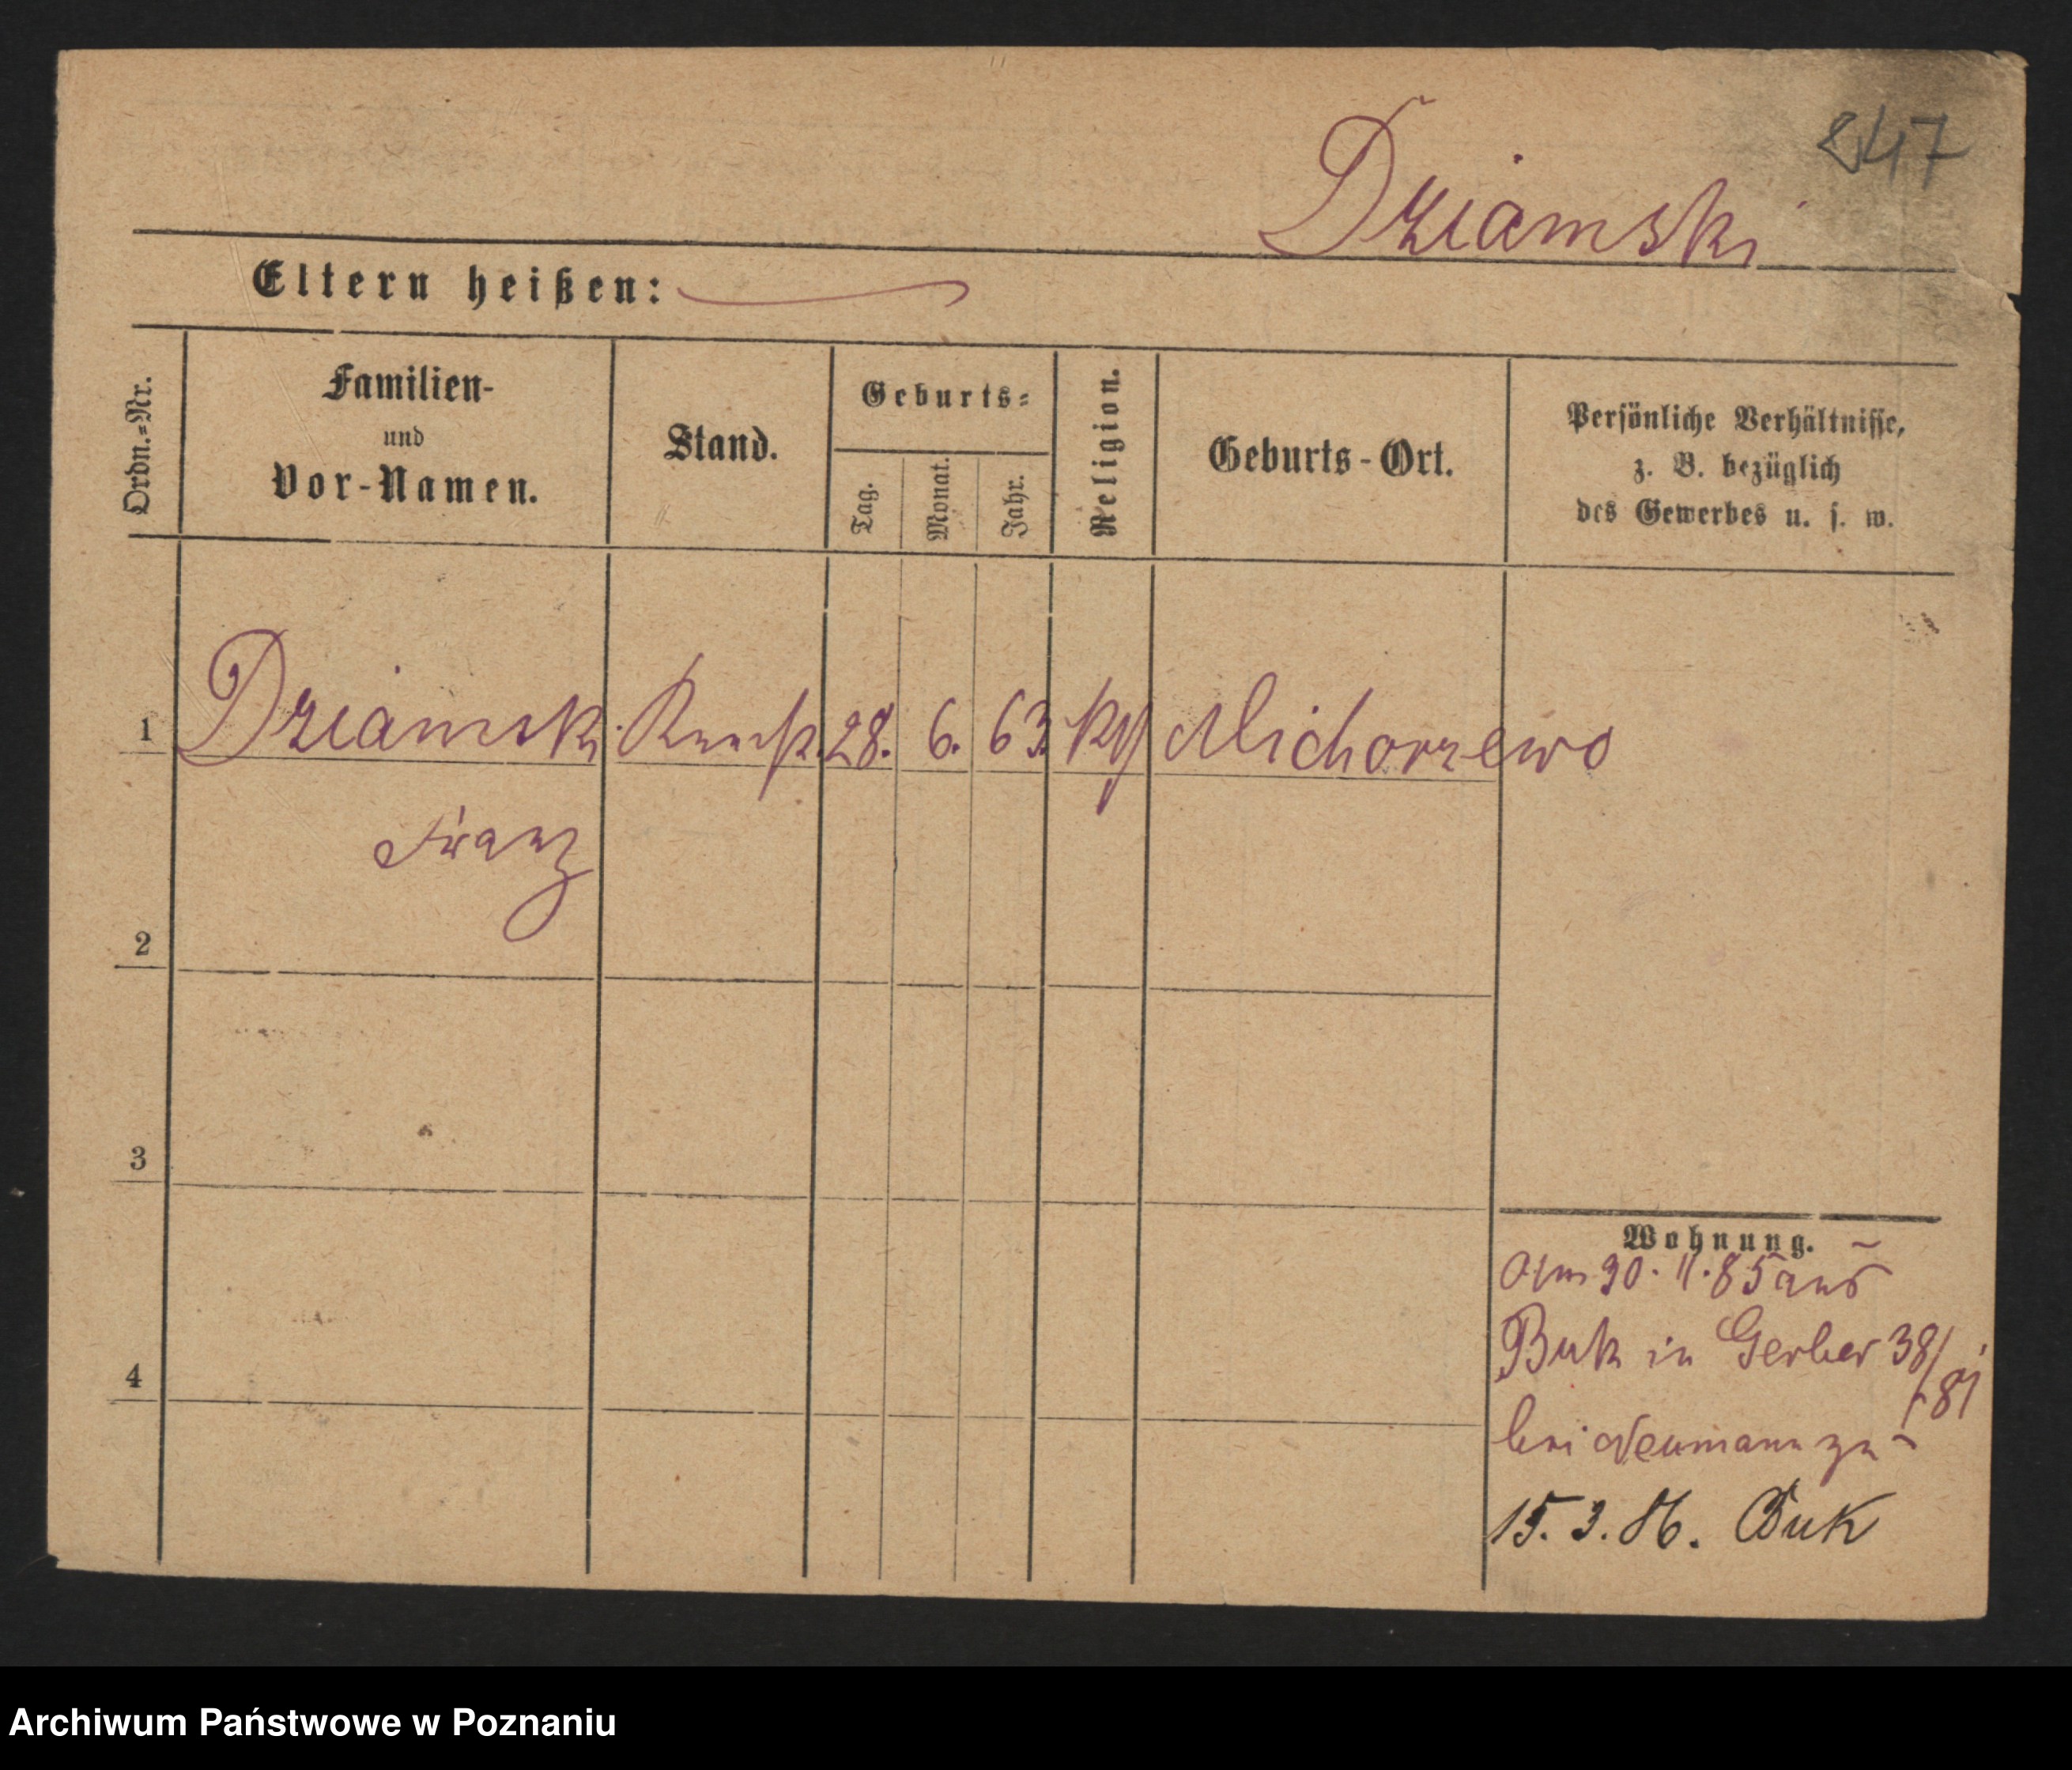 847
Dziamski
Eltern heißen:
Ordn.=Nr.
Familien-
und
Vor-Namen.
Stand.
Geburts=
Tag.
Monat.
Jahr.
Religion.
Geburts-Ort.
Persönliche Verhältnisse,
z. B. bezüglich
des Gewerbes u. s. w.
1 Dziamski 28. 6. 63 Michorzewo
Franz
2
3
4
Wohnung.
Am 30. 11. 85 aus
Buk in Gerber 38/
bei Neumann zu
15. 3. 86. Buk
Archiwum Państwowe w Poznaniu